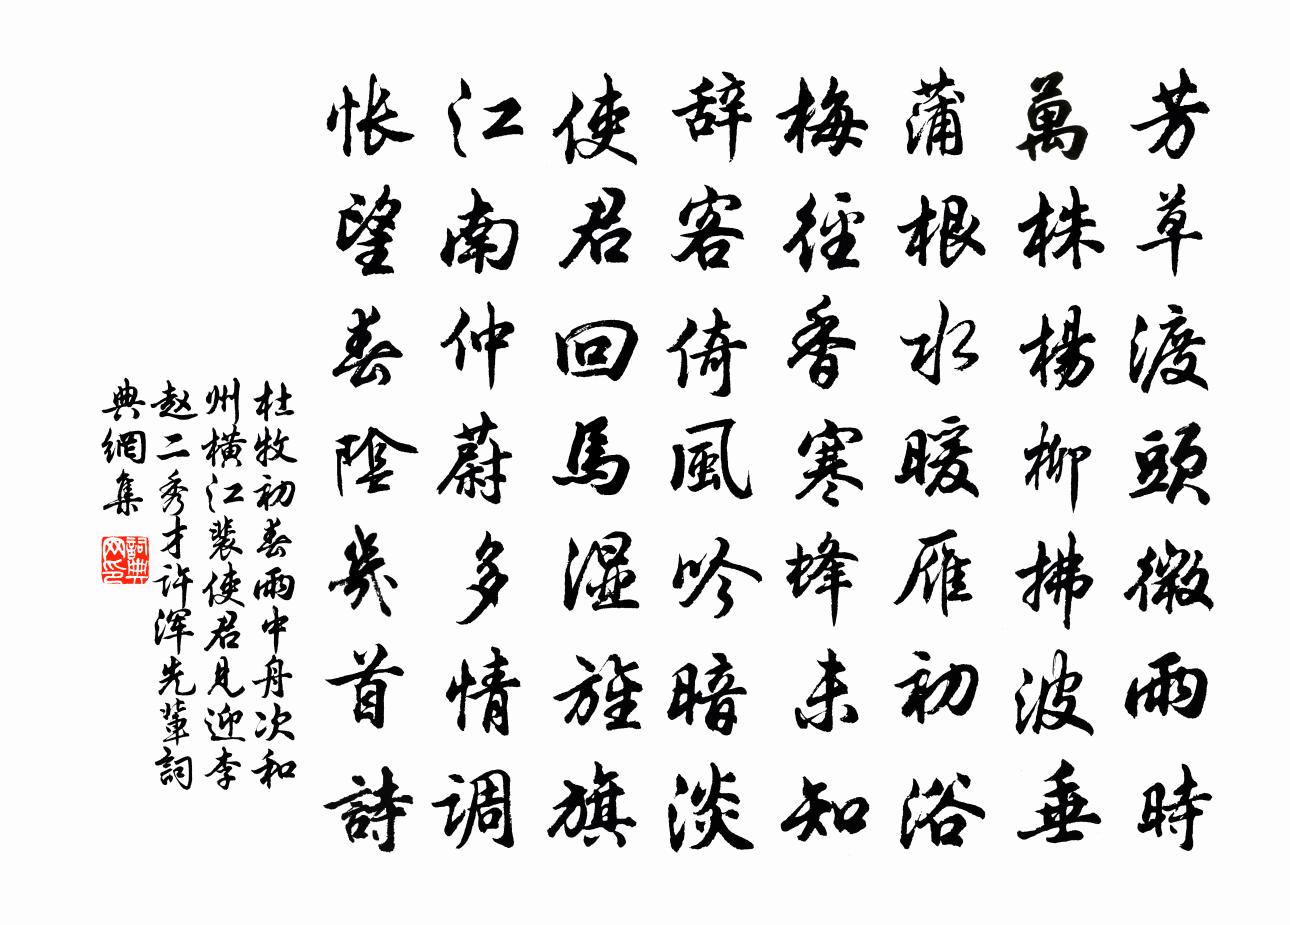 芳草渡頭微雨時
萬株楊柳拂波垂
蒲根水暖雁初浴
梅徑香寒蜂未知
辞客倚風吟暗淡
使君回馬湿旌旗
江南仲蔚多情调
怅望春陰幾首詩
杜牧初春雨中舟次和
州橫江裴使君見迎李
赵二秀才许浑先輩詞
典網集
詞典网印